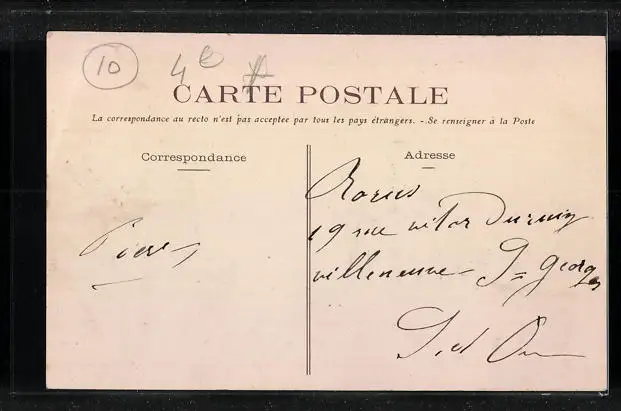 10
4e
CARTE POSTALE
La correspondance au recto n'est pas acceptee par tous les pays étrangers. - Se renseigner à la Poste
Correspondance
Adresse
19 rue victor Duruy
villeneuve St Georges
S. et O